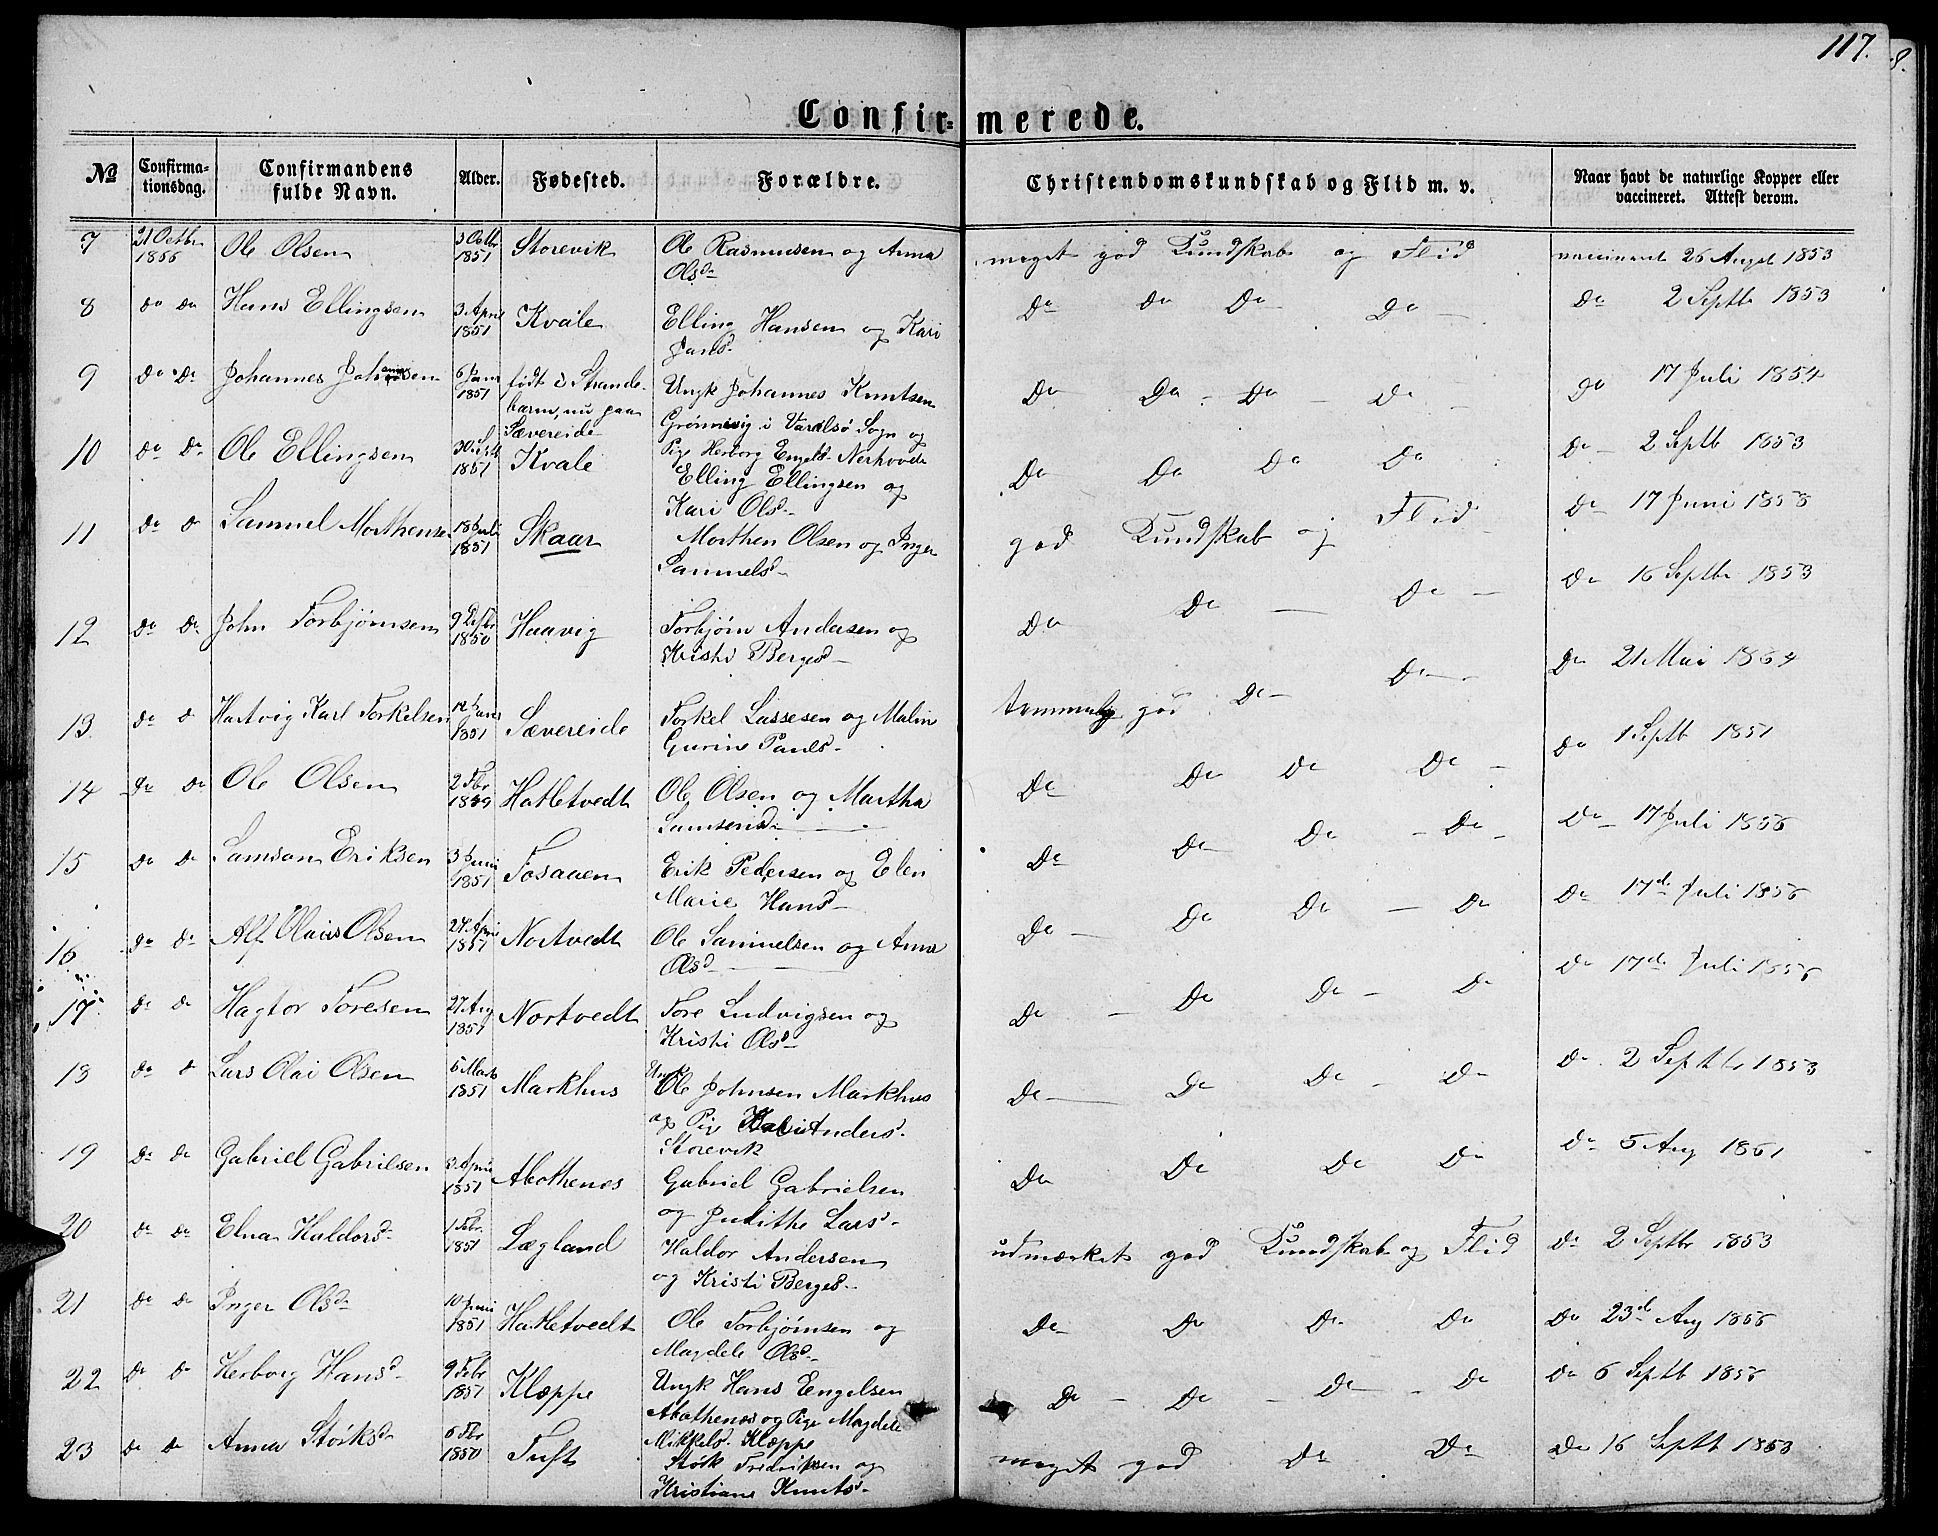 117.
8.
Confir=merede.
No
Confirma-tionsdag.
Confirmandens fulde Navn.
Alder.
Fødested.
Forældre.
Christendomskundskab og Flid m. v.
Naar havt de naturlige Kopper eller vaccineret. Attest derom.
7 21 Octbr 1866 Ole Olsen 3 Octbr 1851 Storevik Ole Rasmusen og Anna Olsd. meget god Kundskab og Flid vaccineret 26 Augst 1853
8 do do Hans Ellingsen 3 April 1851 Kvåle Elling Hansen og Kari Do Do Do Do Do 2 Septb 1853
9 do do Johannes Johannesen 6 Juni 1851 født i Strande-barm, nu paa Sævereide Ungk Johannes Knutsen Grønnevig i Varalsö Sogn og Pige Herborg Engels. Nerhovde Do Do Do Do Do 17 Juli 1854
10 do do Ole Ellingsen 30 Sept 1851 Kvåle Elling Ellingsen og Kari Olsd. Do Do Do Do Do 2 Septb 1853
11 do d Samuel Morthensen 18 Juli 1851 Skaar Morthen Olsen og Inger Samuelsd. god Kundskab og Flid Do 17 Juni 1858
12 do do John Torbjørnsen 9 Decbr 1850 Haavig Torbjørn Andersen og Kristi Bergesd. Do Do Do Do 16 Septbr 1853
13 do d Hartvig Karl Torkelsen 1851 Sævereide Torkel Lassesen og Malin Gurine Paulsd. temmelig god Do Do Do 21 Mai 1864
14 do do Ole Olsen 2 Fbr 1849 Hatletvedt Ole Olsen og Martha Samsensd. Do Do Do Do Do 1 Septb 1851
15 do do Samson Eriksen 3 Juni 1851 Fosaaen Erik Pedersen og Elen Marie Hansd. Do Do Do Do Do 17 Juli 1855
16 do do Alf Olaus Olsen 24 Apri 1851 Nortvedt Ole Samuelsen og Anna Olsd. Do Do Do Do Do 17de Juli 1855
17 do do Hagtor Toresen 27 Aug 1851 Nortvedt Tore Ludvigsen og Kristi Olsd. Do Do Do Do Do 17de Juli 1855
18 do d Lars Olai Olsen 5 Marts 1851 Markhus Ungk Ole Johnsen Markhus og Pige Kari Andersd. Storevik Do Do Do Do Do 2 Septbr 1853
19 do do Gabriel Gabrielsen 3 April 1851 Akothenæs Gabriel Gabrielsen og Judithe Larsd. Do Do Do Do Do 5 Aug 1861
20 do do Elna Haldorsd. 1 Febr. 1851 Lægland Haldor Andersen og Kristi Bergesd. udmærket god Kundskab og Flid Do 2 Septbr 1853
21 do do Inger Olsd. 10 Juni 1851 Hatletvedt Ole Torbjørnsen og Magdele Olsd. Do Do Do Do Do 23de Aug 1855
22 do do Herborg Hansd. 9 Febr 1851 Kloppe Ungk Hans Engelsen Akothenæs og Pige Magdele Mikkelsd. Kloppe Do Do Do Do Do 6 Septb 1855
23 do do Anna Størksd. 6 Fbr 1850 Tuft Størk Fredriksen og Kristiane Knutsd. meget god Do Do Do 16 Septb 1853